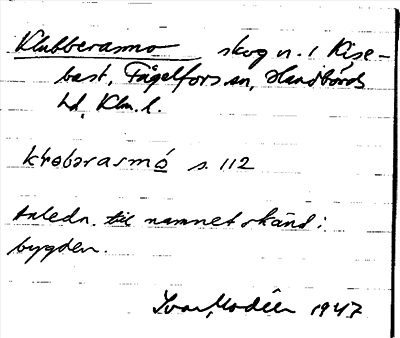 Klubberasmo skog n. i Kise-
bast, Fågelfors sn, Handbörds
hd, Klm. l.
klɵbərasmó s. 112
Anledn. till namnet okänd i
bygden.
Ivar Modéer 1947